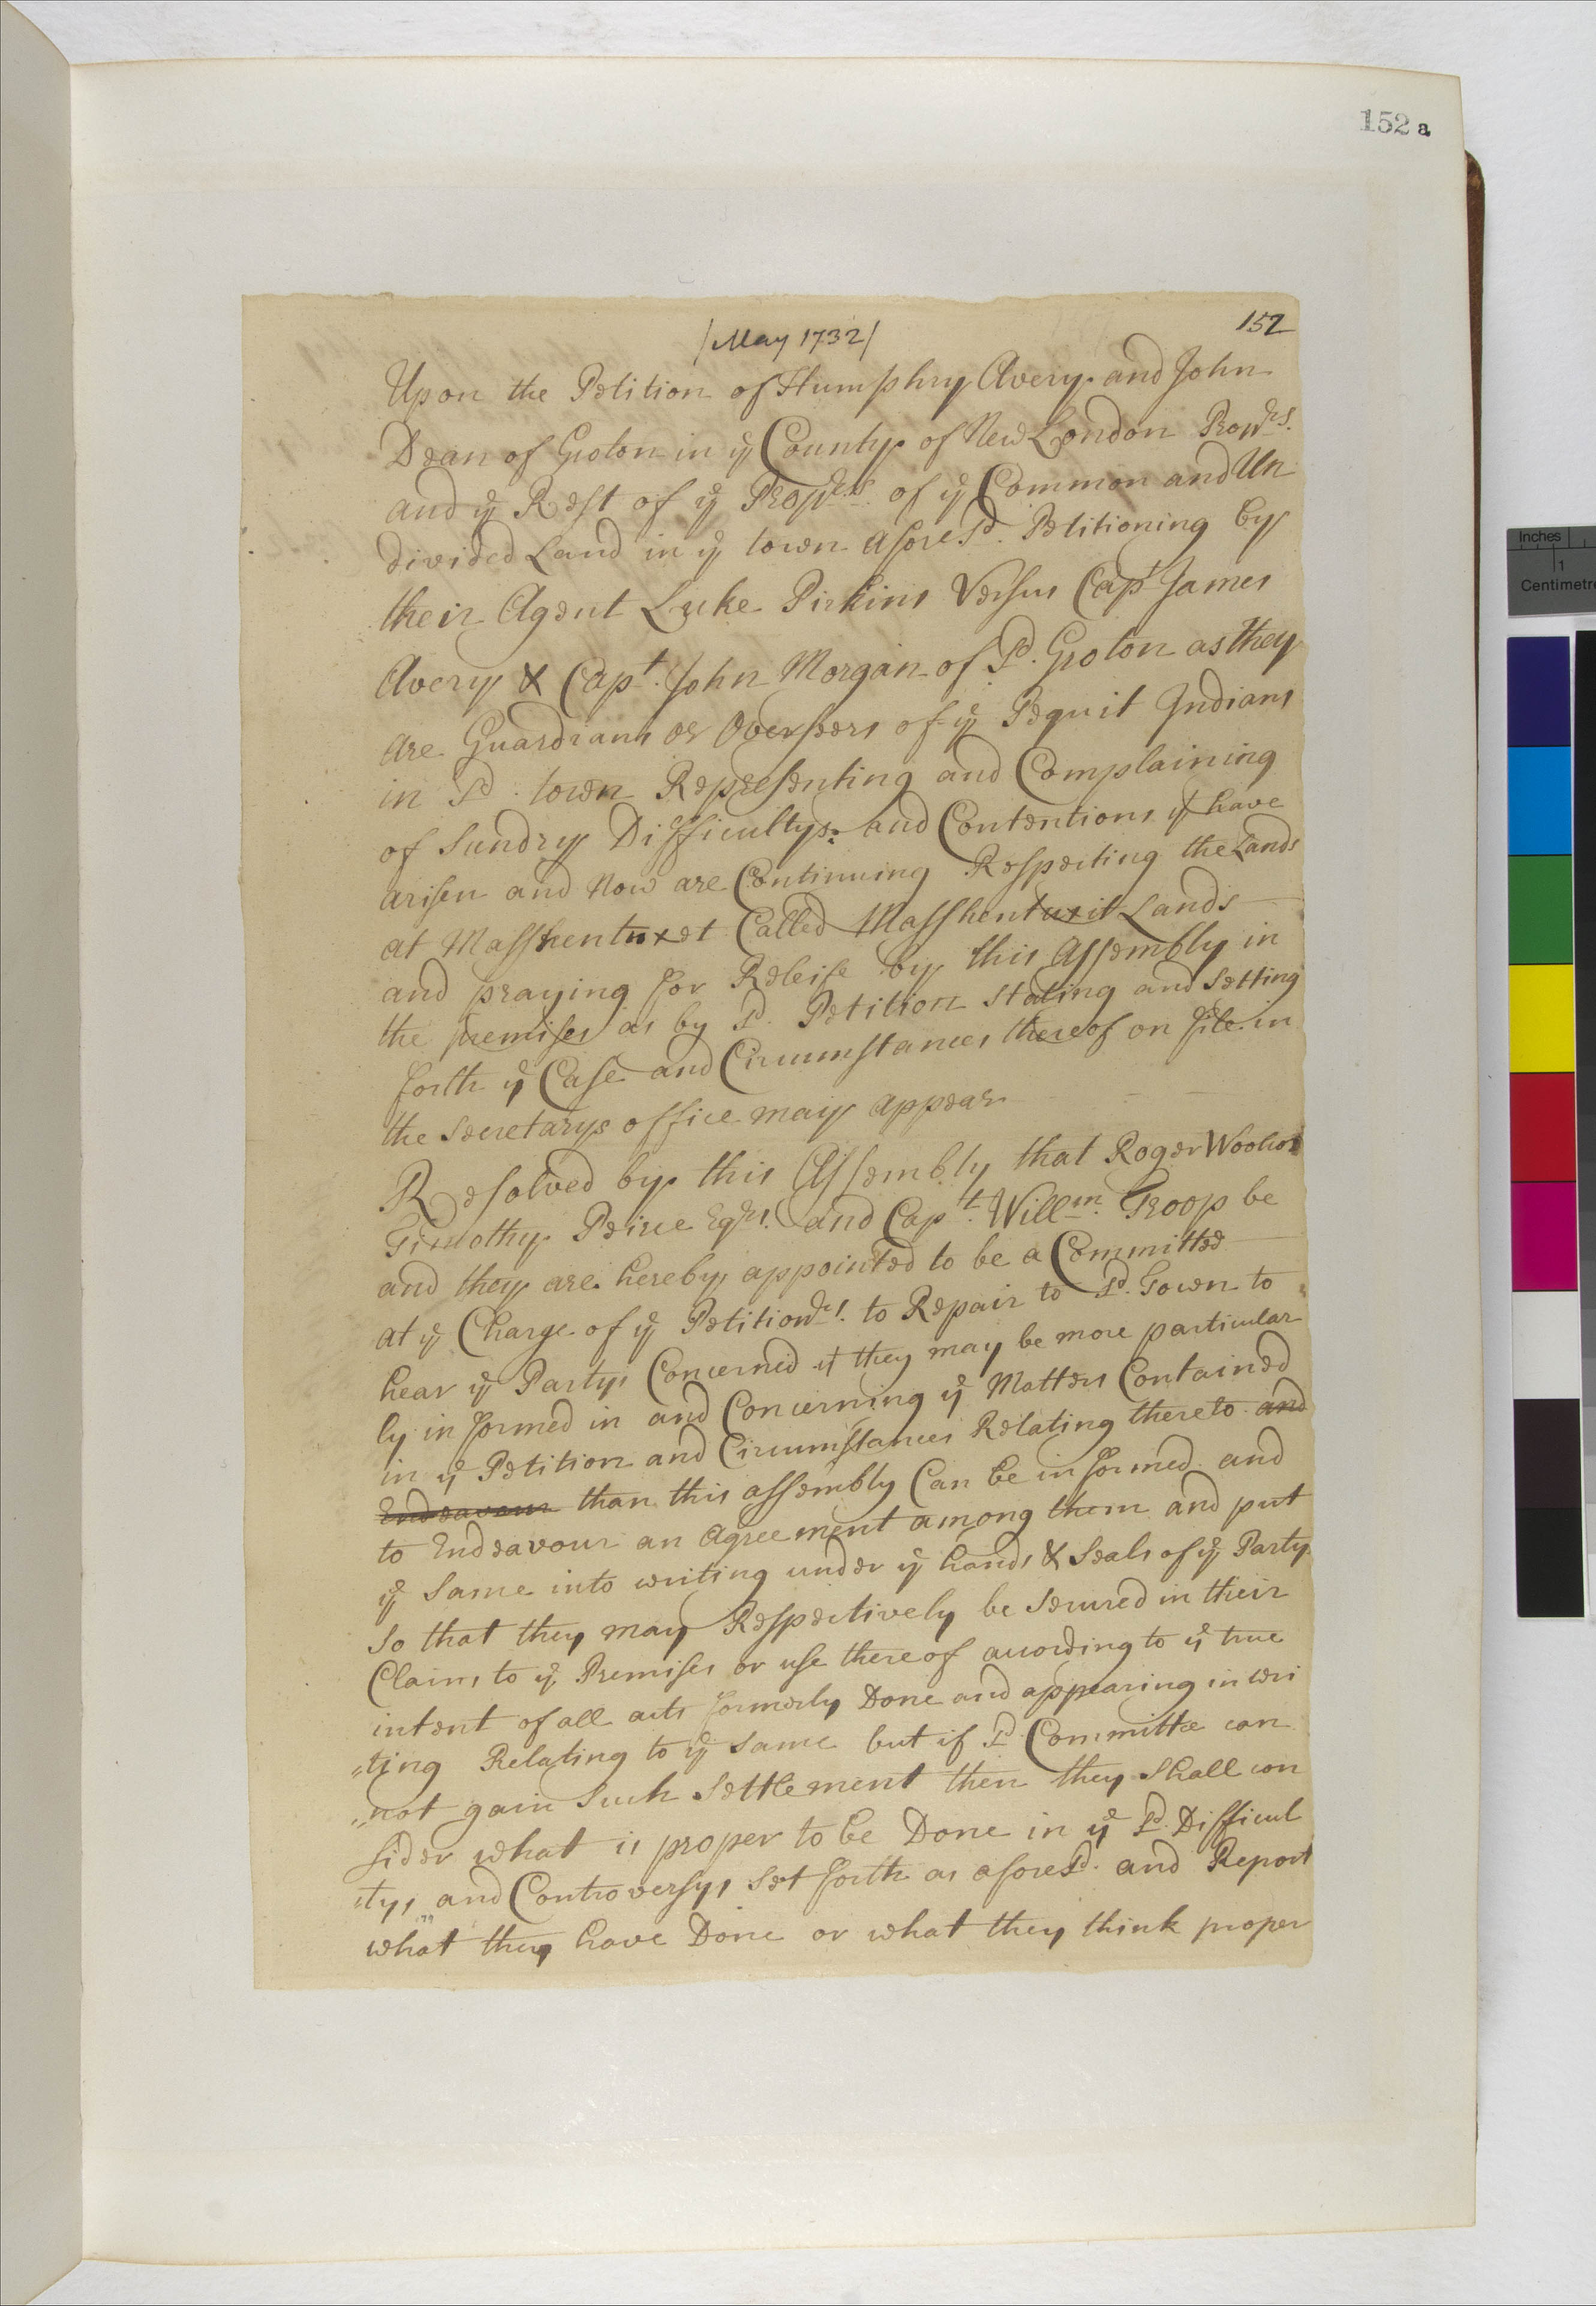 152 a
152
/May 1732/
Upon the Petition of Humphry Avery and John
Dean of Groton in ye County of New London Propers.
and ye Rest of ye Propers. of ye Common and Un
divided Land in ye town afore sd. Petitioning by
their Agent Luke Pirkins Versus Capt James
Avery & Capt. John Morgan of sd. Groton as they
are Guardians or Overseers of ye Pequit Indians
in sd. town Representing and Complaining
of Sundry Difficultys: and Contentions yt have
arisen and Now are Continuing Respecting the Lands
at Masshentuxet Called Masshentuxit Lands
and praying for Releife by this Assembly in
the premises as by sd. Petition Stating and Setting
forth ye Case and Circumstances thereof on file in
the Secretarys office may appear
Resolved by this Assembly that Roger Woolcot
Timothy Peirce Esqrs. and Capt. Willm. Throop be
and they are hereby appointed to be a Committee
at ye Charge of ye Petitionrs. to Repair to sd. Town to
hear ye Partys Concerned yt they may be more particular
ly informed in and Concerning ye Matters Contained
in ye Petition and Circumstances Relating thereto and
Endeavour than this assembly Can be informed and
to Endeavour an Agreement among them and put
ye Same into writing under ye hands & Seals of ye Partys
So that they may Respectively be Secured in their
Claims to ye Premises or use thereof according to ye true
intent of all acts formerly Done and appearing in wri
"ting Relating to ye Same but if sd Committee can
"not gain Such Settlement then they Shall con
sider what is proper to be Done in ye sd. Difficul
"tys, and Controversys Set forth as aforesd. and Report
what they have Done or what they think proper
Inches
1
Centimetre